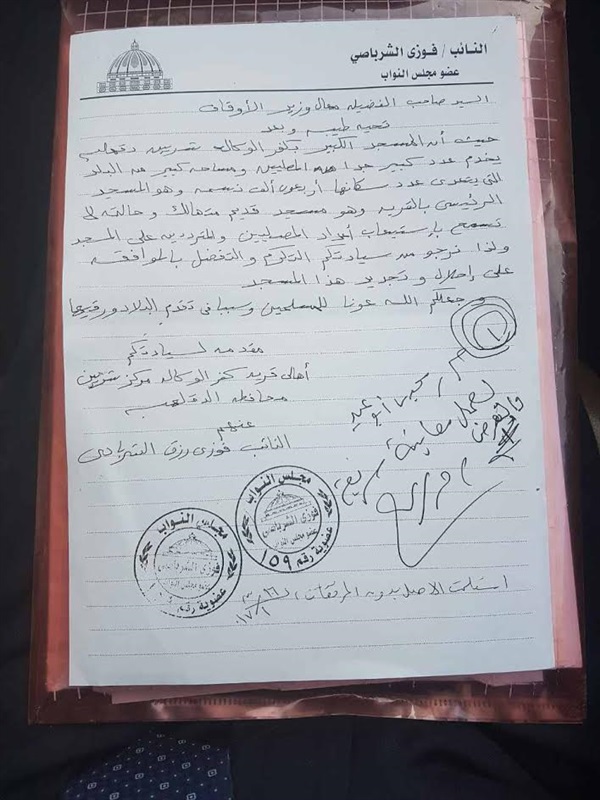 النائب / فوزى الشرباصي
عضو مجلس النواب
السيد صاحب الفضيله معالى وزير الأوقاف
تحيه طيبه وبعد
حيث أن المسجد الكبير بكفر الوكاله شربين دقهليه
يخدم عدد كبير جدا من المصليين ومساحه كبير من البلد
التى يتعدى عدد سكانها أربعون ألف نسمه وهو المسجد
الرئيسى بالقريه وهو مسجد قديم متهالك وحالته لا
تسمح بإستيعاب أعداد المصليين والمتردديه على المسجد
ولذا نرجو من سيادتكم التكرم والتفضل بالموافقه
على إحلال وتجديد هذا المسجد
وجعلكم الله عونا للمسلمين وسببا فى تقدم البلاد ورقيها
مقدمه لسيادتكم
أهالى قرية كفر الوكاله مركز شربين
محافظه الدقهليه
عنهم
النائب فوزى رزق الشرباصى
م /
لعمل معاينة
مجلس النواب
فوزى الشرباصى
عضو مجلس النواب
عضوية رقم ١٥٩
مجلس النواب
فوزى الشرباصى
عضوية رقم
استلمت الاصل بدون المرفقات